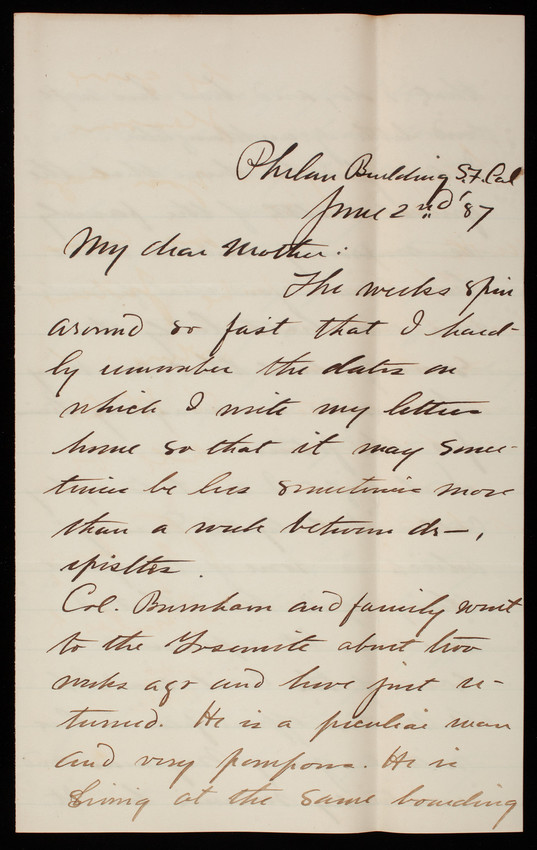 Phelan Building S.F. Cal
June 2nd '87
My dear Mother:
The weeks spin
around so fast that I hard-
ly remember the dates on
which I write my letters
home so that it may some-
times be less sometimes more
than a week between
epistles.
Col. Burnham and family went
to the Yosemite about two
weeks ago and have just re-
turned. He is a peculiar man
and very pompous. He is
living at the same boarding